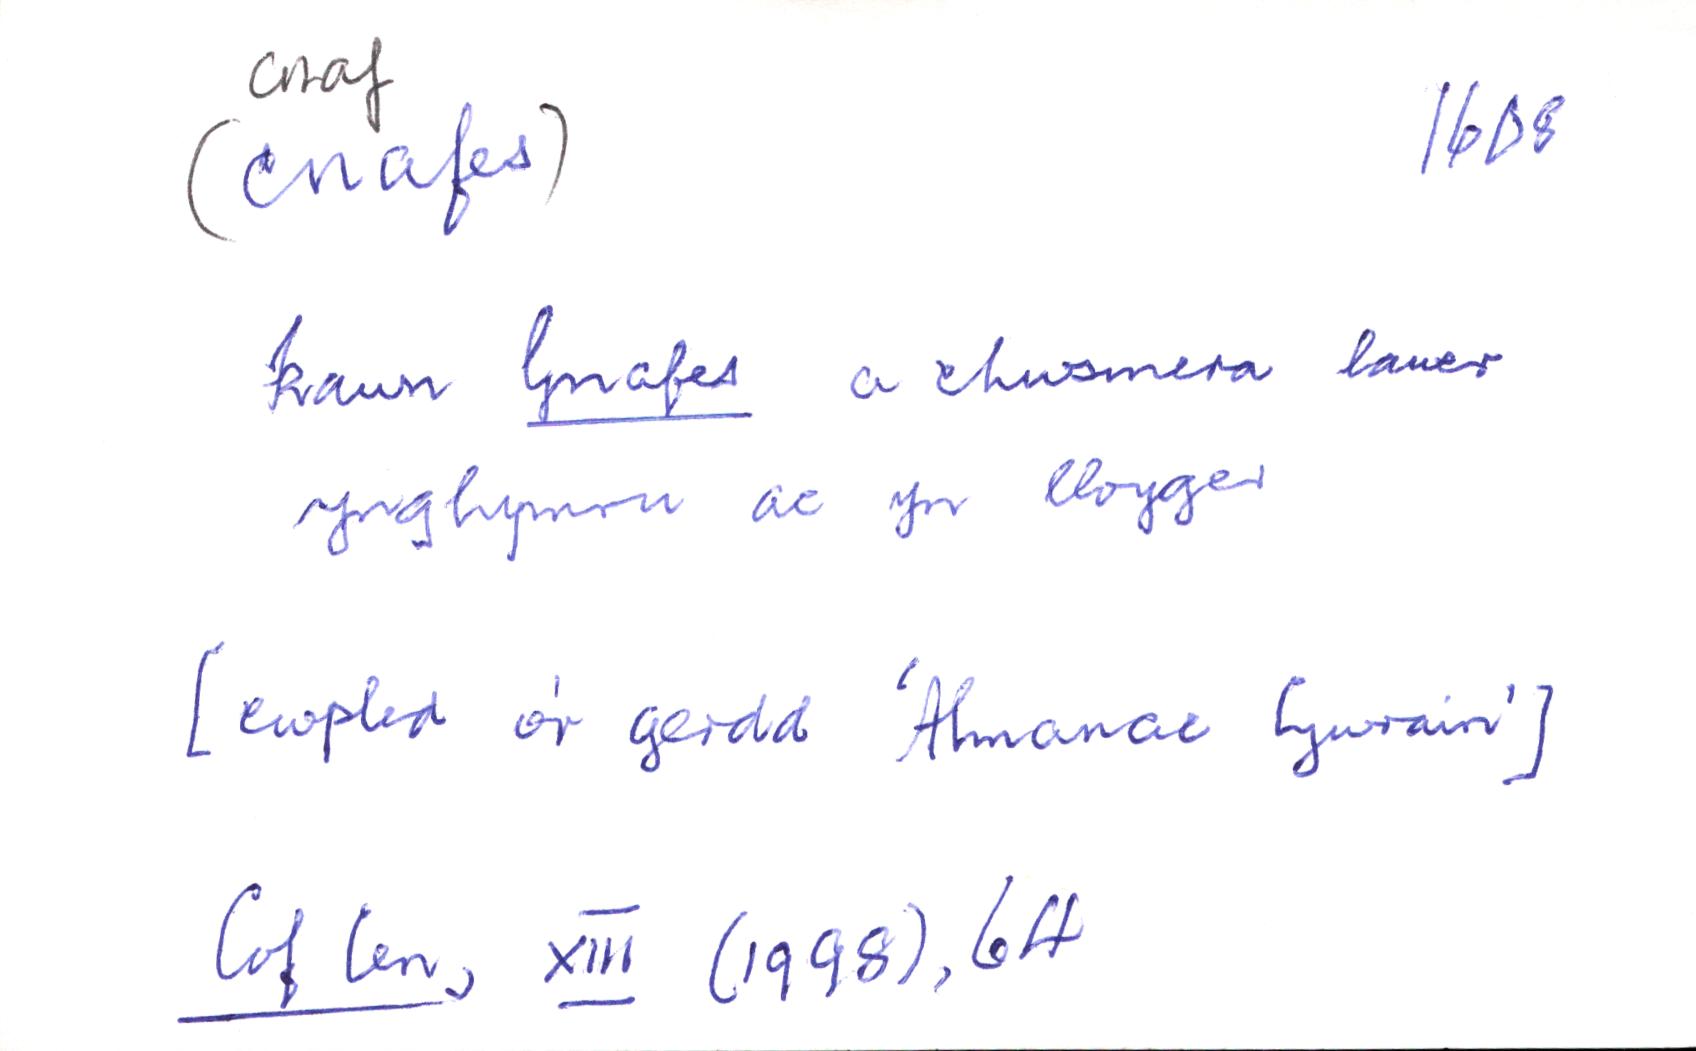 cnaf
(cnafes) 1608
kawn Gnafes a chwsmera lawer
ynghymru ac yn lloyger
[cwpled o'r gerdd 'Almanac Cywrain']
Cof Cen, XIII (1998), 64